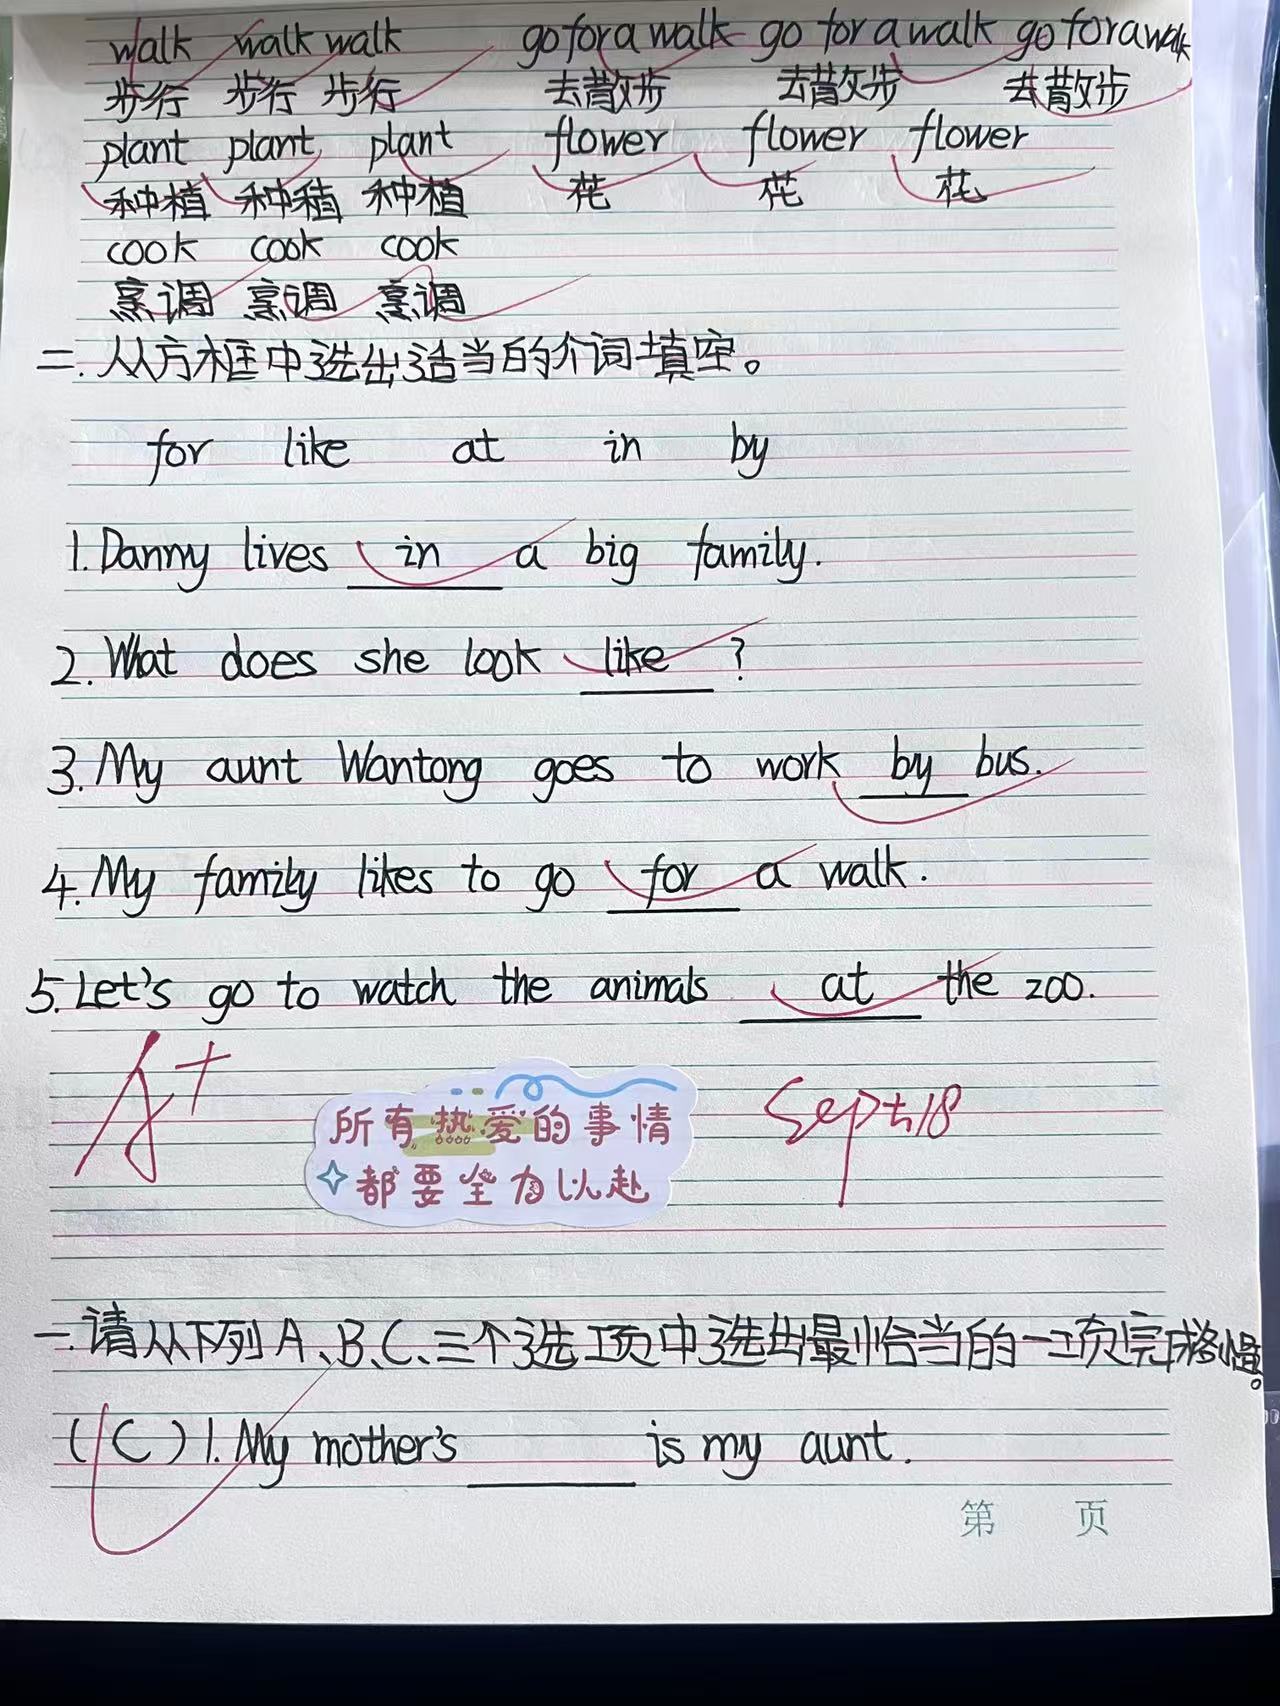 walk walk walk go for a walk go for a walk go for a walk
步行 步行 步行 去散步 去散步 去散步
plant plant plant flower flower flower
种植 种植 种植 花 花 花
cook cook cook
烹调 烹调 烹调
二.从方框中选出适当的介词填空。
for like at in by
1.Danny lives in a big family.
2.What does she look like ?
3.My aunt Wantong goes to work by bus.
4.My family likes to go for a walk.
5.Let's go to watch the animals at the zoo.
A+
Sept.18
所有热爱的事情
都要全力以赴
一.请从下列A、B、C、三个选项中选出最恰当的一项完成
(C)1.My mother's is my aunt.
第 页